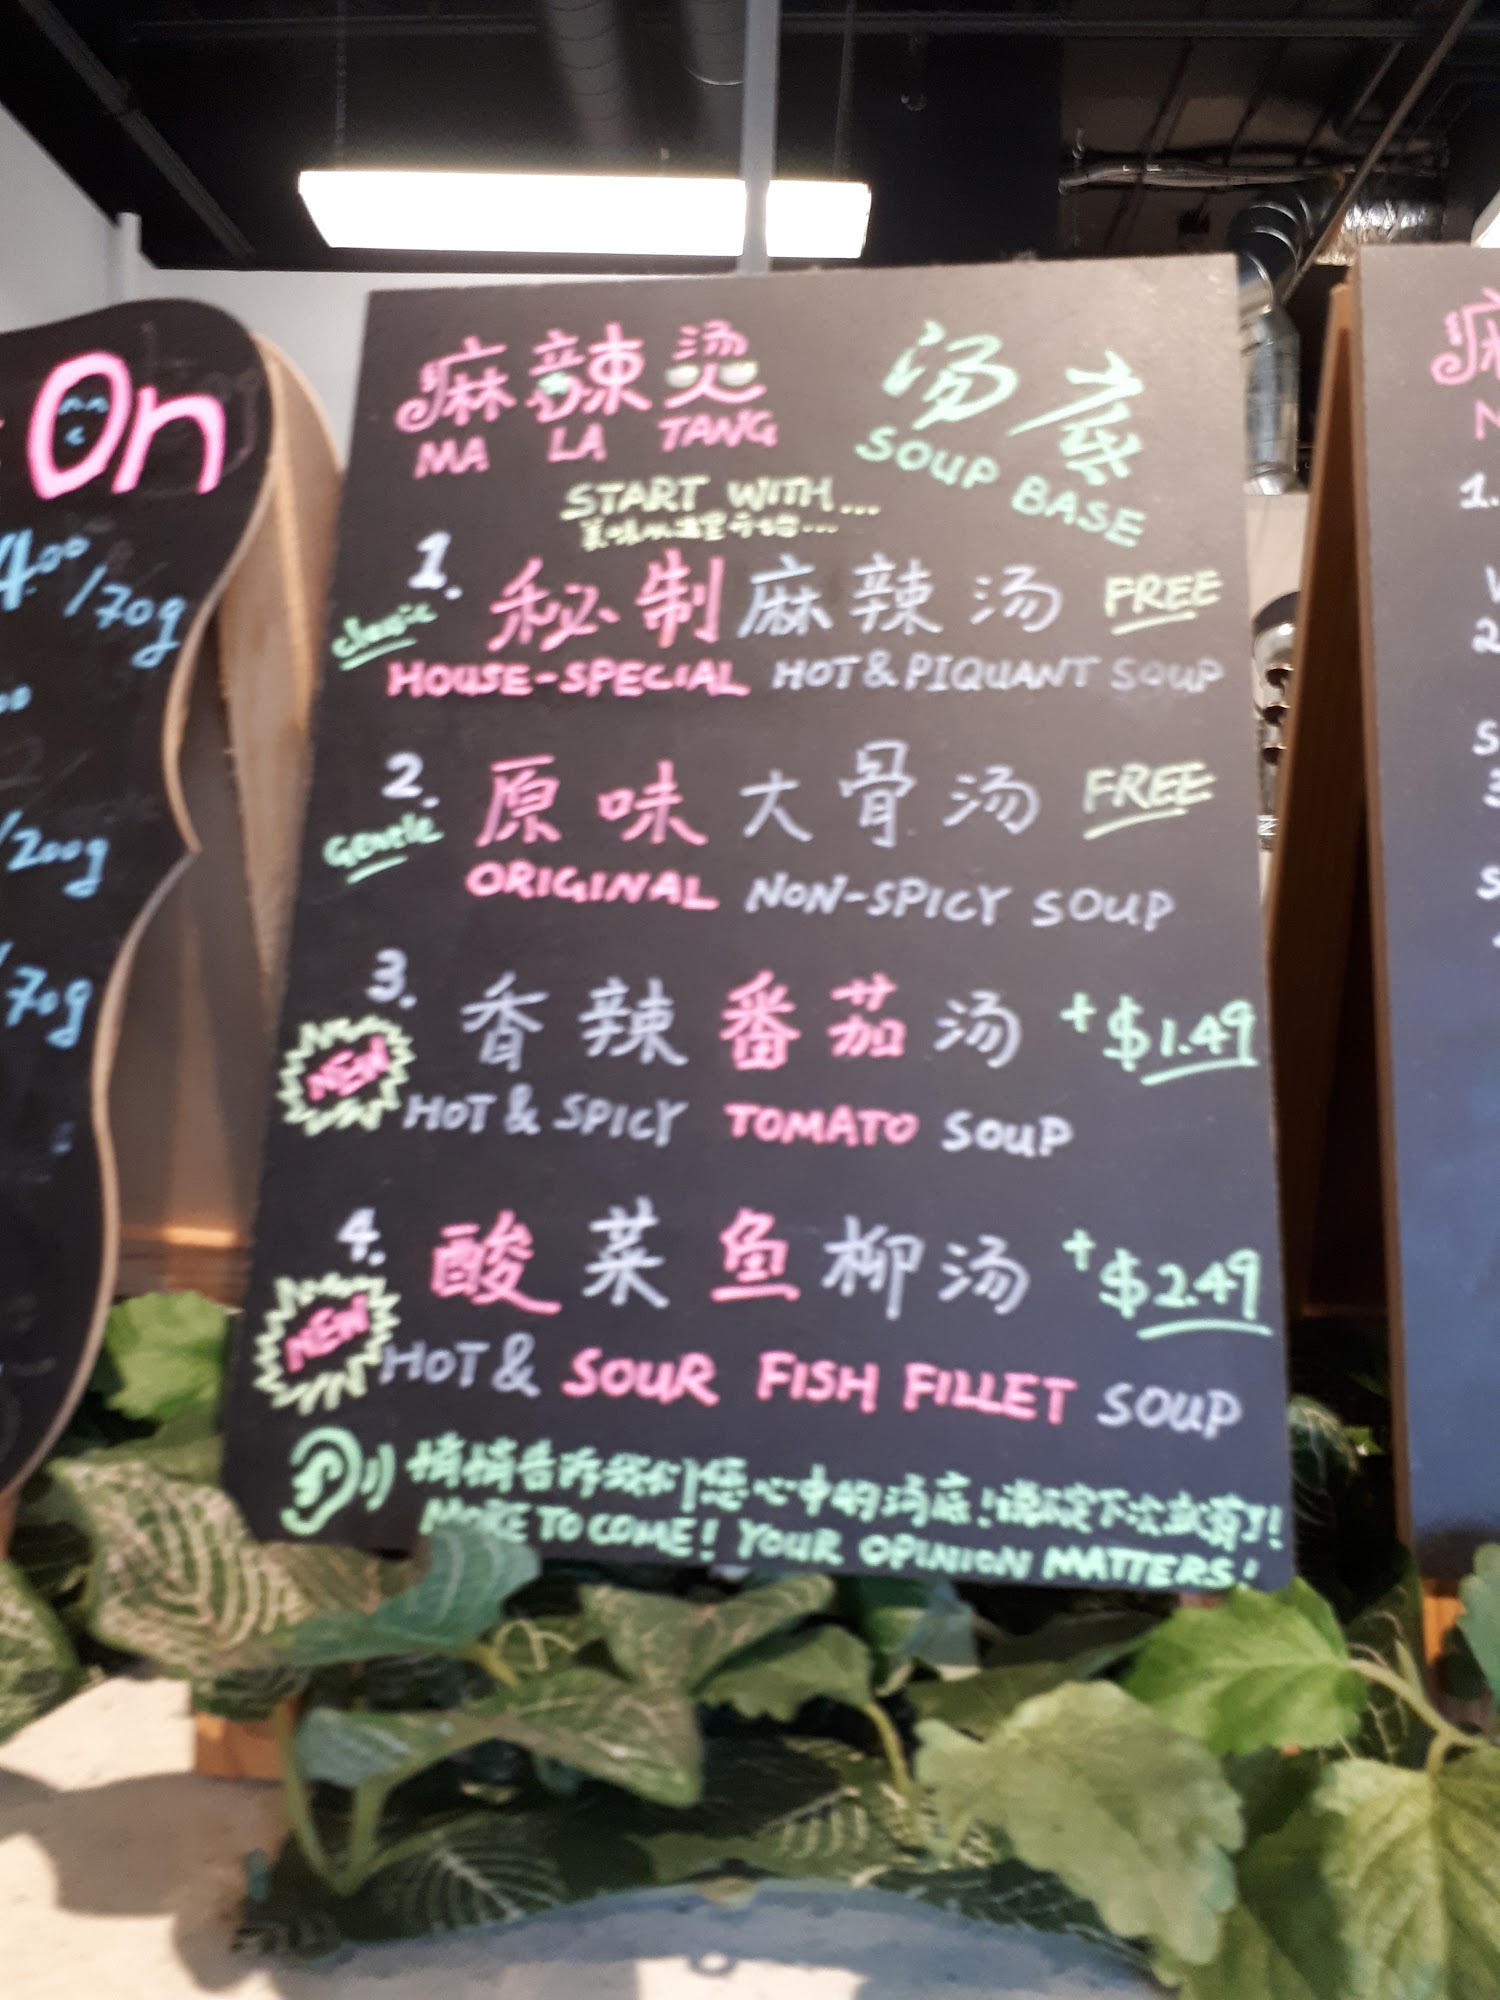 On
4.00/70g
/200g
/70g
麻辣烫 汤底
MA LA TANG SOUP BASE
START WITH...
美味从这里开始...
1. 秘制麻辣汤 FREE
classic
HOUSE-SPECIAL HOT & PIQUANT SOUP
2. 原味大骨汤 FREE
Gentle
ORIGINAL NON-SPICY SOUP
3. 香辣番茄汤 +$1.49
NEW
HOT & SPICY TOMATO SOUP
4. 酸菜鱼柳汤 +$2.49
NEW
HOT & SOUR FISH FILLET SOUP
悄悄告诉我们您心中的汤底!说不定下次就有了!
MORE TO COME! YOUR OPINION MATTERS!
1.
2